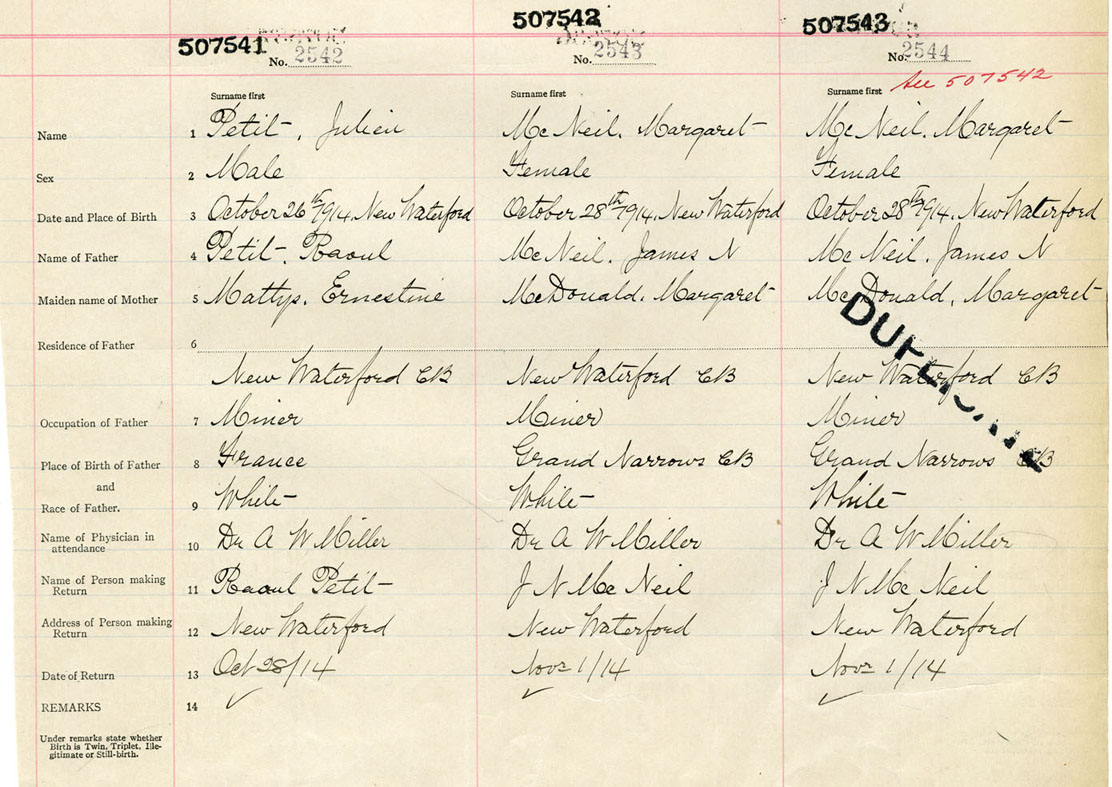 507541 507542 507543
No. 2542 No. 2543 No. 2544
See 507542
Surname first Surname first Surname first
Name 1 Petit, Julien McNeil, Margaret McNeil, Margaret
Sex 2 Male Female Female
Date and Place of Birth 3 October 26th 1914, New Waterford October 28th 1914, New Waterford October 28th 1914, New Waterford
Name of Father 4 Petit, Raoul McNeil, James N McNeil, James N
Maiden name of Mother 5 Mattys, Ernestine McDonald, Margaret McDonald, Margaret
DUPLICATE
Residence of Father 6
New Waterford CB New Waterford CB New Waterford CB
Occupation of Father 7 Miner Miner Miner
Place of Birth of Father 8 France Grand Narrows CB Grand Narrows CB
and
Race of Father. 9 White White White
Name of Physician in
attendance 10 Dr A W Miller Dr A W Miller Dr A W Miller
Name of Person making
Return 11 Raoul Petit J N McNeil J N McNeil
Address of Person making
Return 12 New Waterford New Waterford New Waterford
Date of Return 13 Oct 28/14 Novr 1/14 Novr 1/14
REMARKS 14
Under remarks state whether
Birth is Twin, Triplet, Ille-
gitimate or Still-birth.